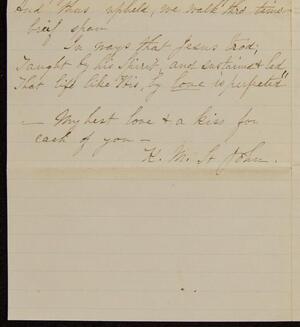 And thus upheld, we walk thro time
brief span
In ways that Jesus trod;
Taught by his Spirit, and sustained & led
That life like His, by love is perfected"
— My best love & a kiss for
each of you —
H. M. St John.